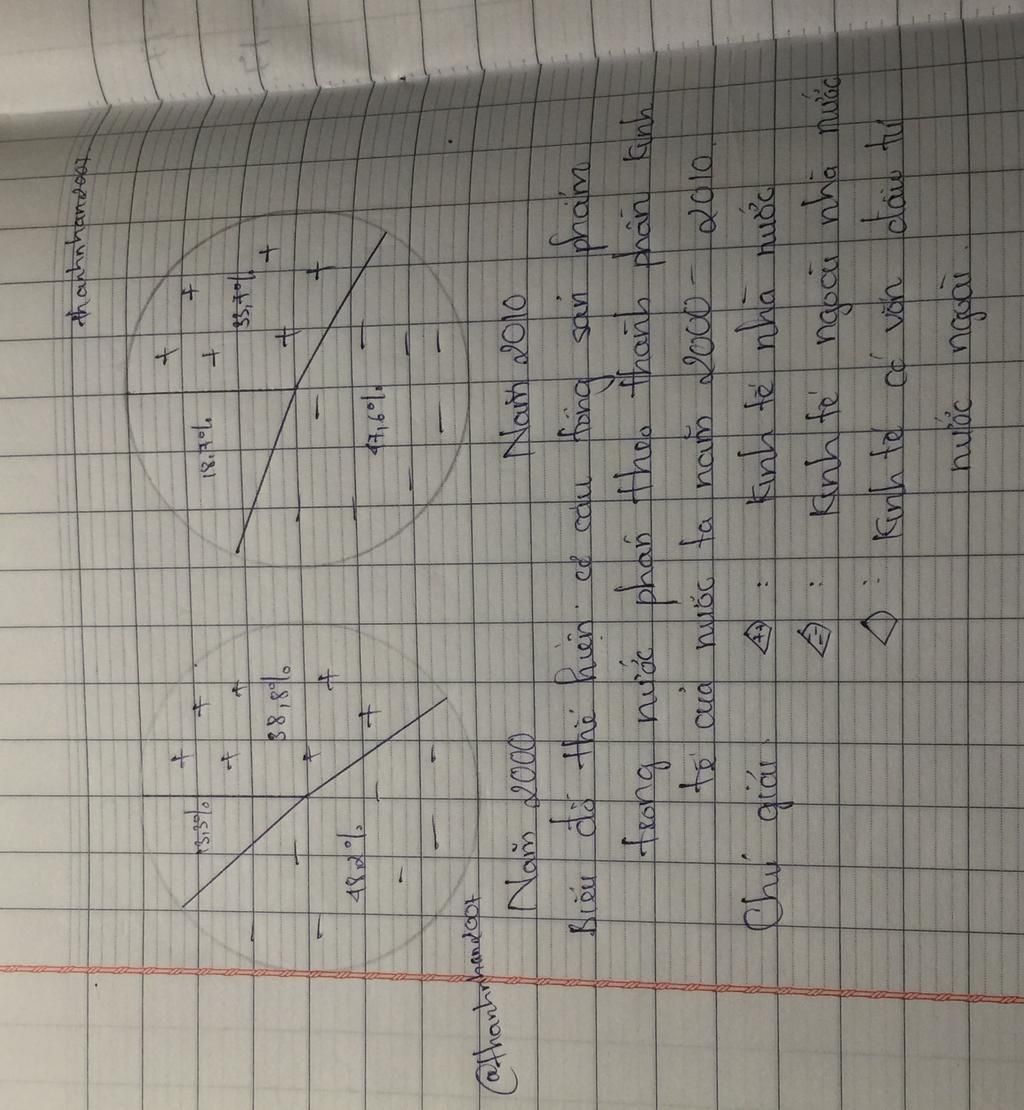 thanhnhan2007
13,3%
38,8%
48,2%
18,7%
33,7%
47,6%
Năm 2000
Năm 2010
@thanhnhan2007
Biểu đồ thể hiện cơ cấu tổng sản phẩm
trong nước phân theo thành phần kinh
tế của nước ta năm 2000 - 2010
Chú giải:
++ : Kinh tế nhà nước
- : Kinh tế ngoài nhà nước
: Kinh tế có vốn đầu tư
nước ngoài.